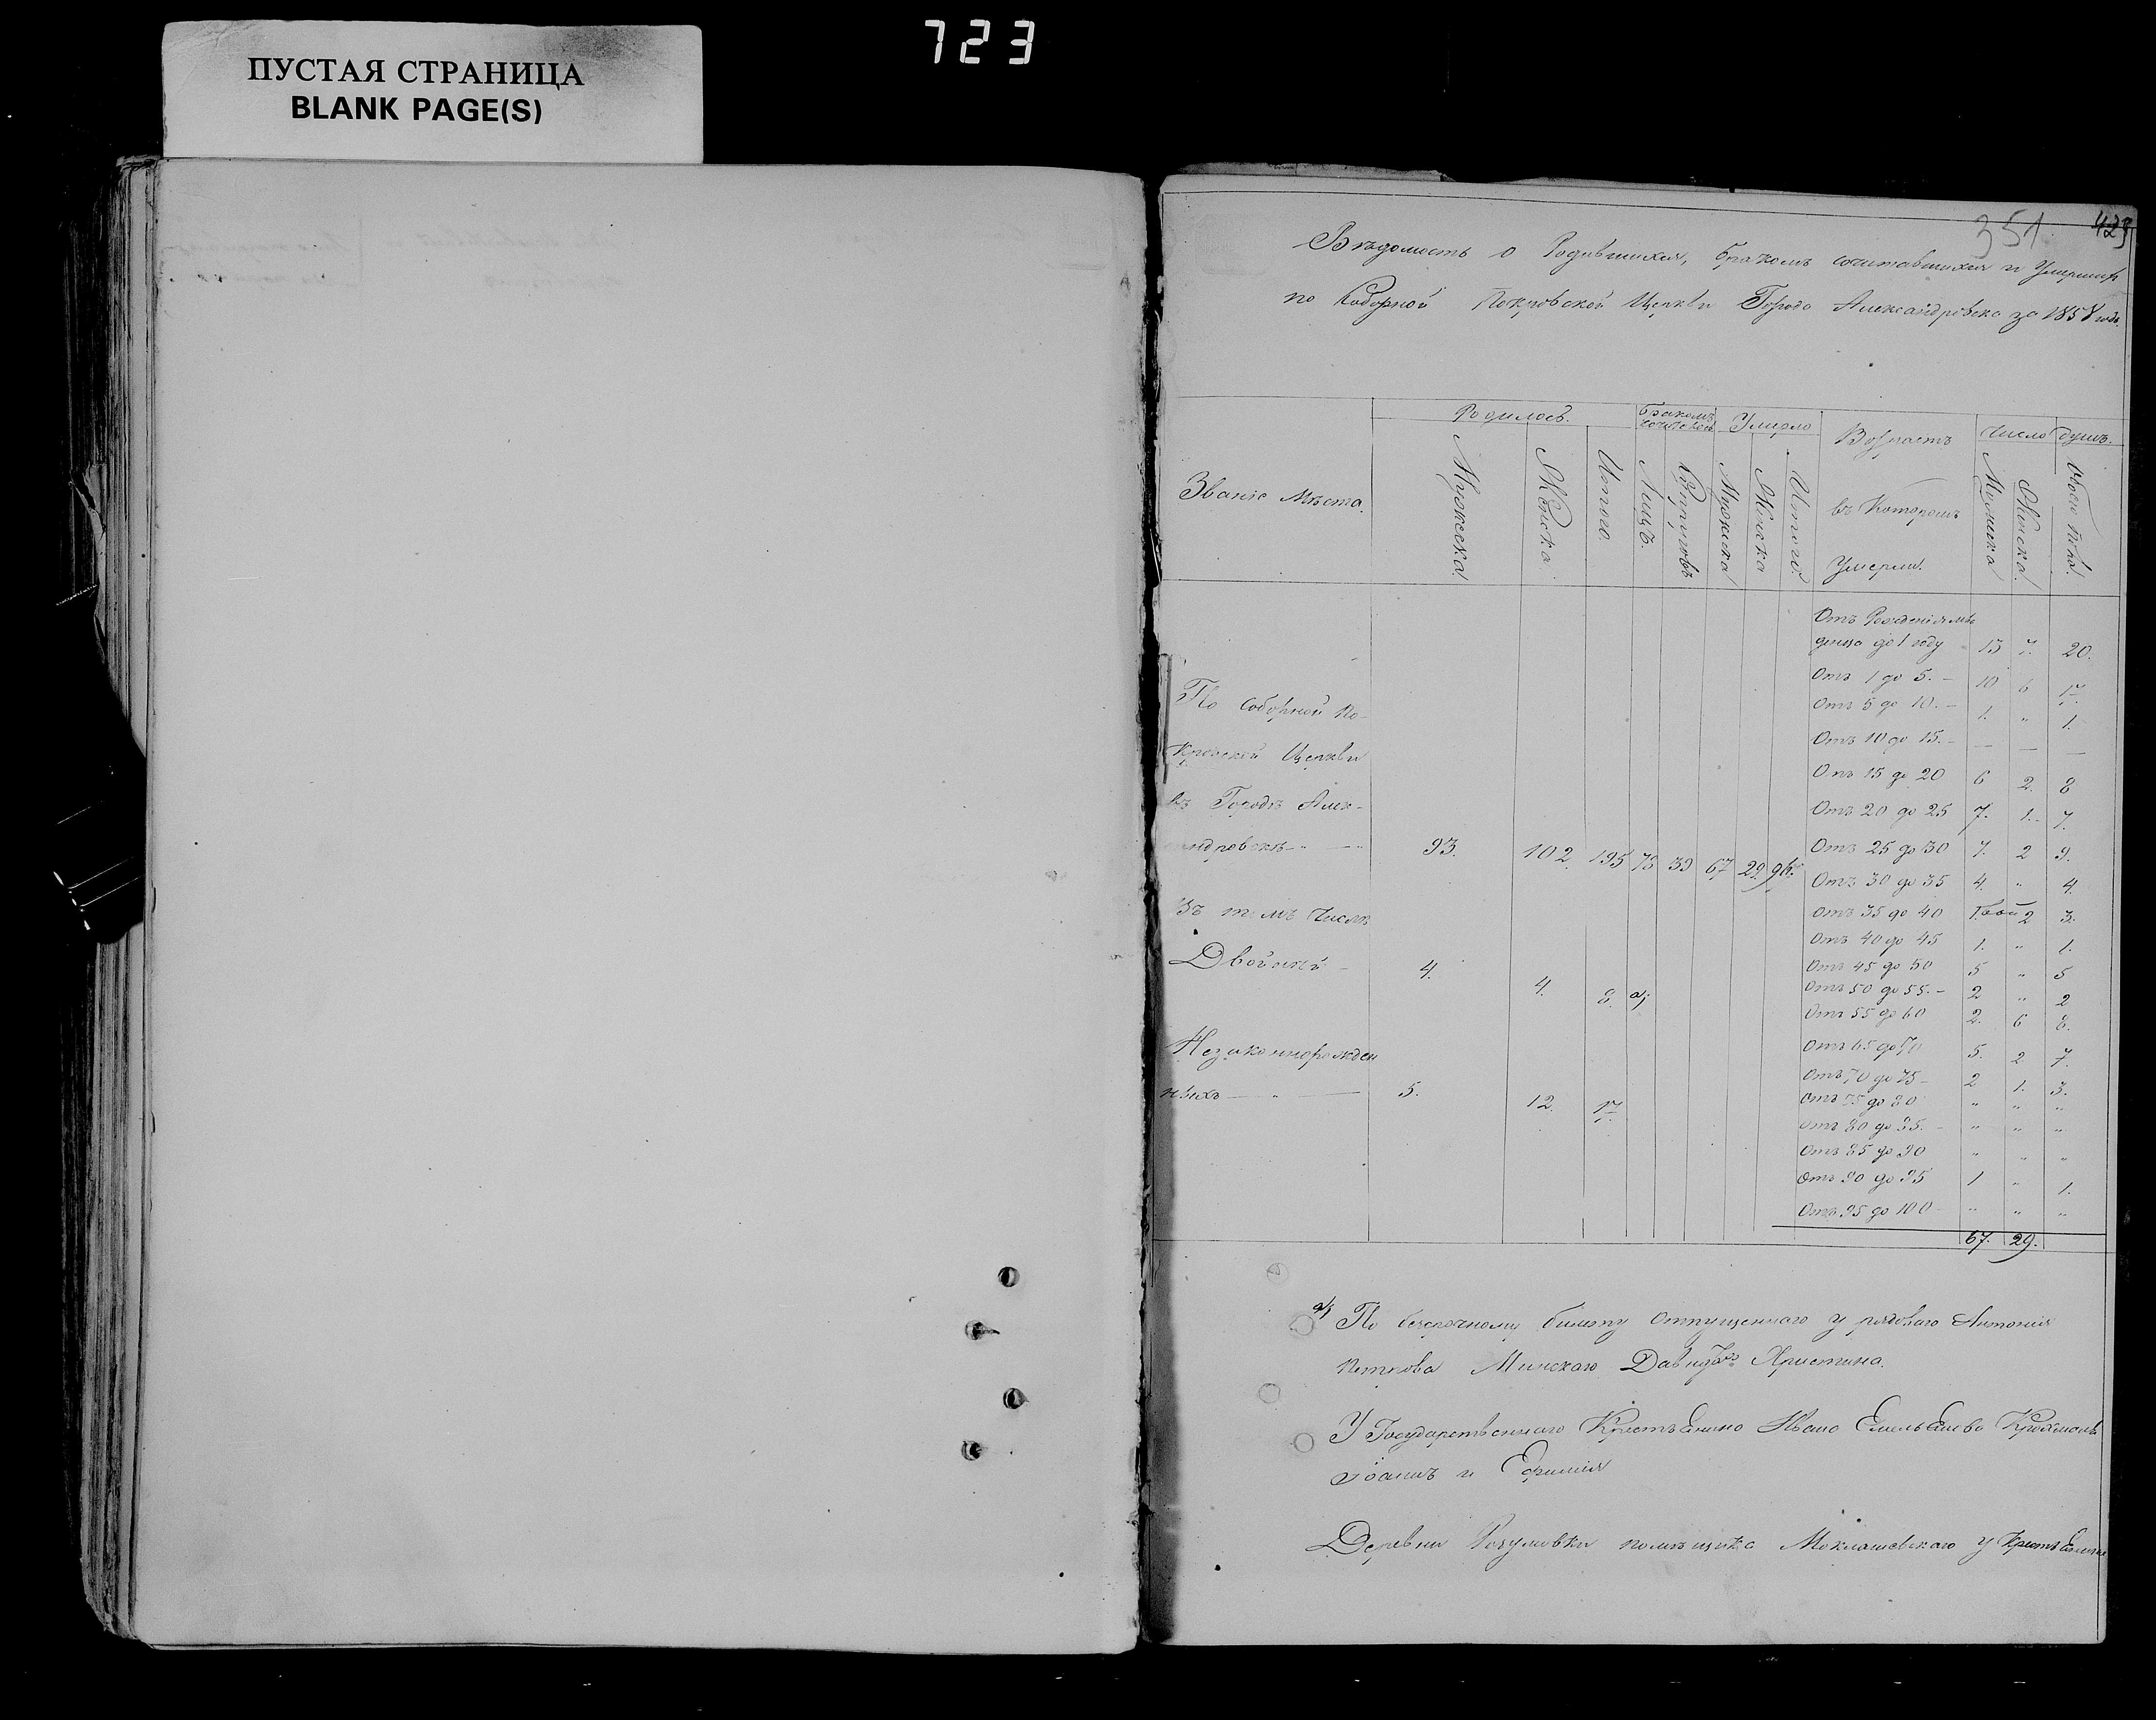 723
ПУСТАЯ СТРАНИЦА
BLANK PAGE(S)
351. 423
Вѣдомость о Родившихся, бракомъ сочитавшихся и Умершихъ
по Соборной Покровской Церкви Города Александровска за 1858 годъ.
Званіе Мѣста.
Родилось.
Мужеска.
Женска.
Итого.
Бракомъ сочеталось
Лицъ.
Супруговъ
Умерло
Мужеска
Женска
Итого.
Возрастъ
въ Которомъ
Умерли.
Число душъ.
Мужеска
Женска.
Обоего пола.
По Соборной По-
кровской Церкви
въ Городѣ Алек-
сандровскѣ — " — " 93. 102. 195 78 39 67 29. 96.
Въ томъ Числѣ
Двойней — 4. 4. 8. а)
Незаконнорожден
ныхъ — " — 5. 12. 17.
Отъ Рожденія мла
денца до 1 году 13 7. 20.
Отъ 1 до 5. – 10 6 17.
Отъ 5 до 10. – 1. " 1.
Отъ 10 до 15. – — — —
Отъ 15 до 20 6 2. 8
Отъ 20 до 25 7. 1. 7.
Отъ 25 до 30 7. 2 9.
Отъ 30 до 35 4. " 4.
Отъ 35 до 40 2 3.
Отъ 40 до 45 1. " 1.
Отъ 45 до 50 5 " 5
Отъ 50 до 55. – 2 " 2
Отъ 55 до 60 2. 6 8.
Отъ 65 до 70 5. 2 7.
Отъ 70 до 75 – 2 1. 3.
Отъ 75 до 80 " " "
Отъ 80 до 85. – " " "
Отъ 85 до 90 " " "
Отъ 90 до 95 1 " 1.
Отъ 95 до 100 – " " "
67. 29.
а) По безсрочному билету Отпущеннаго у рядоваго Антонія
Петрова Минскаго Давидъ и Христина.
У Государственнаго Крестьянина Ивана Емельянова
Іоаннъ и Ефимія
Деревни Розумовки помѣщика Миклашевскаго у Крестьянина